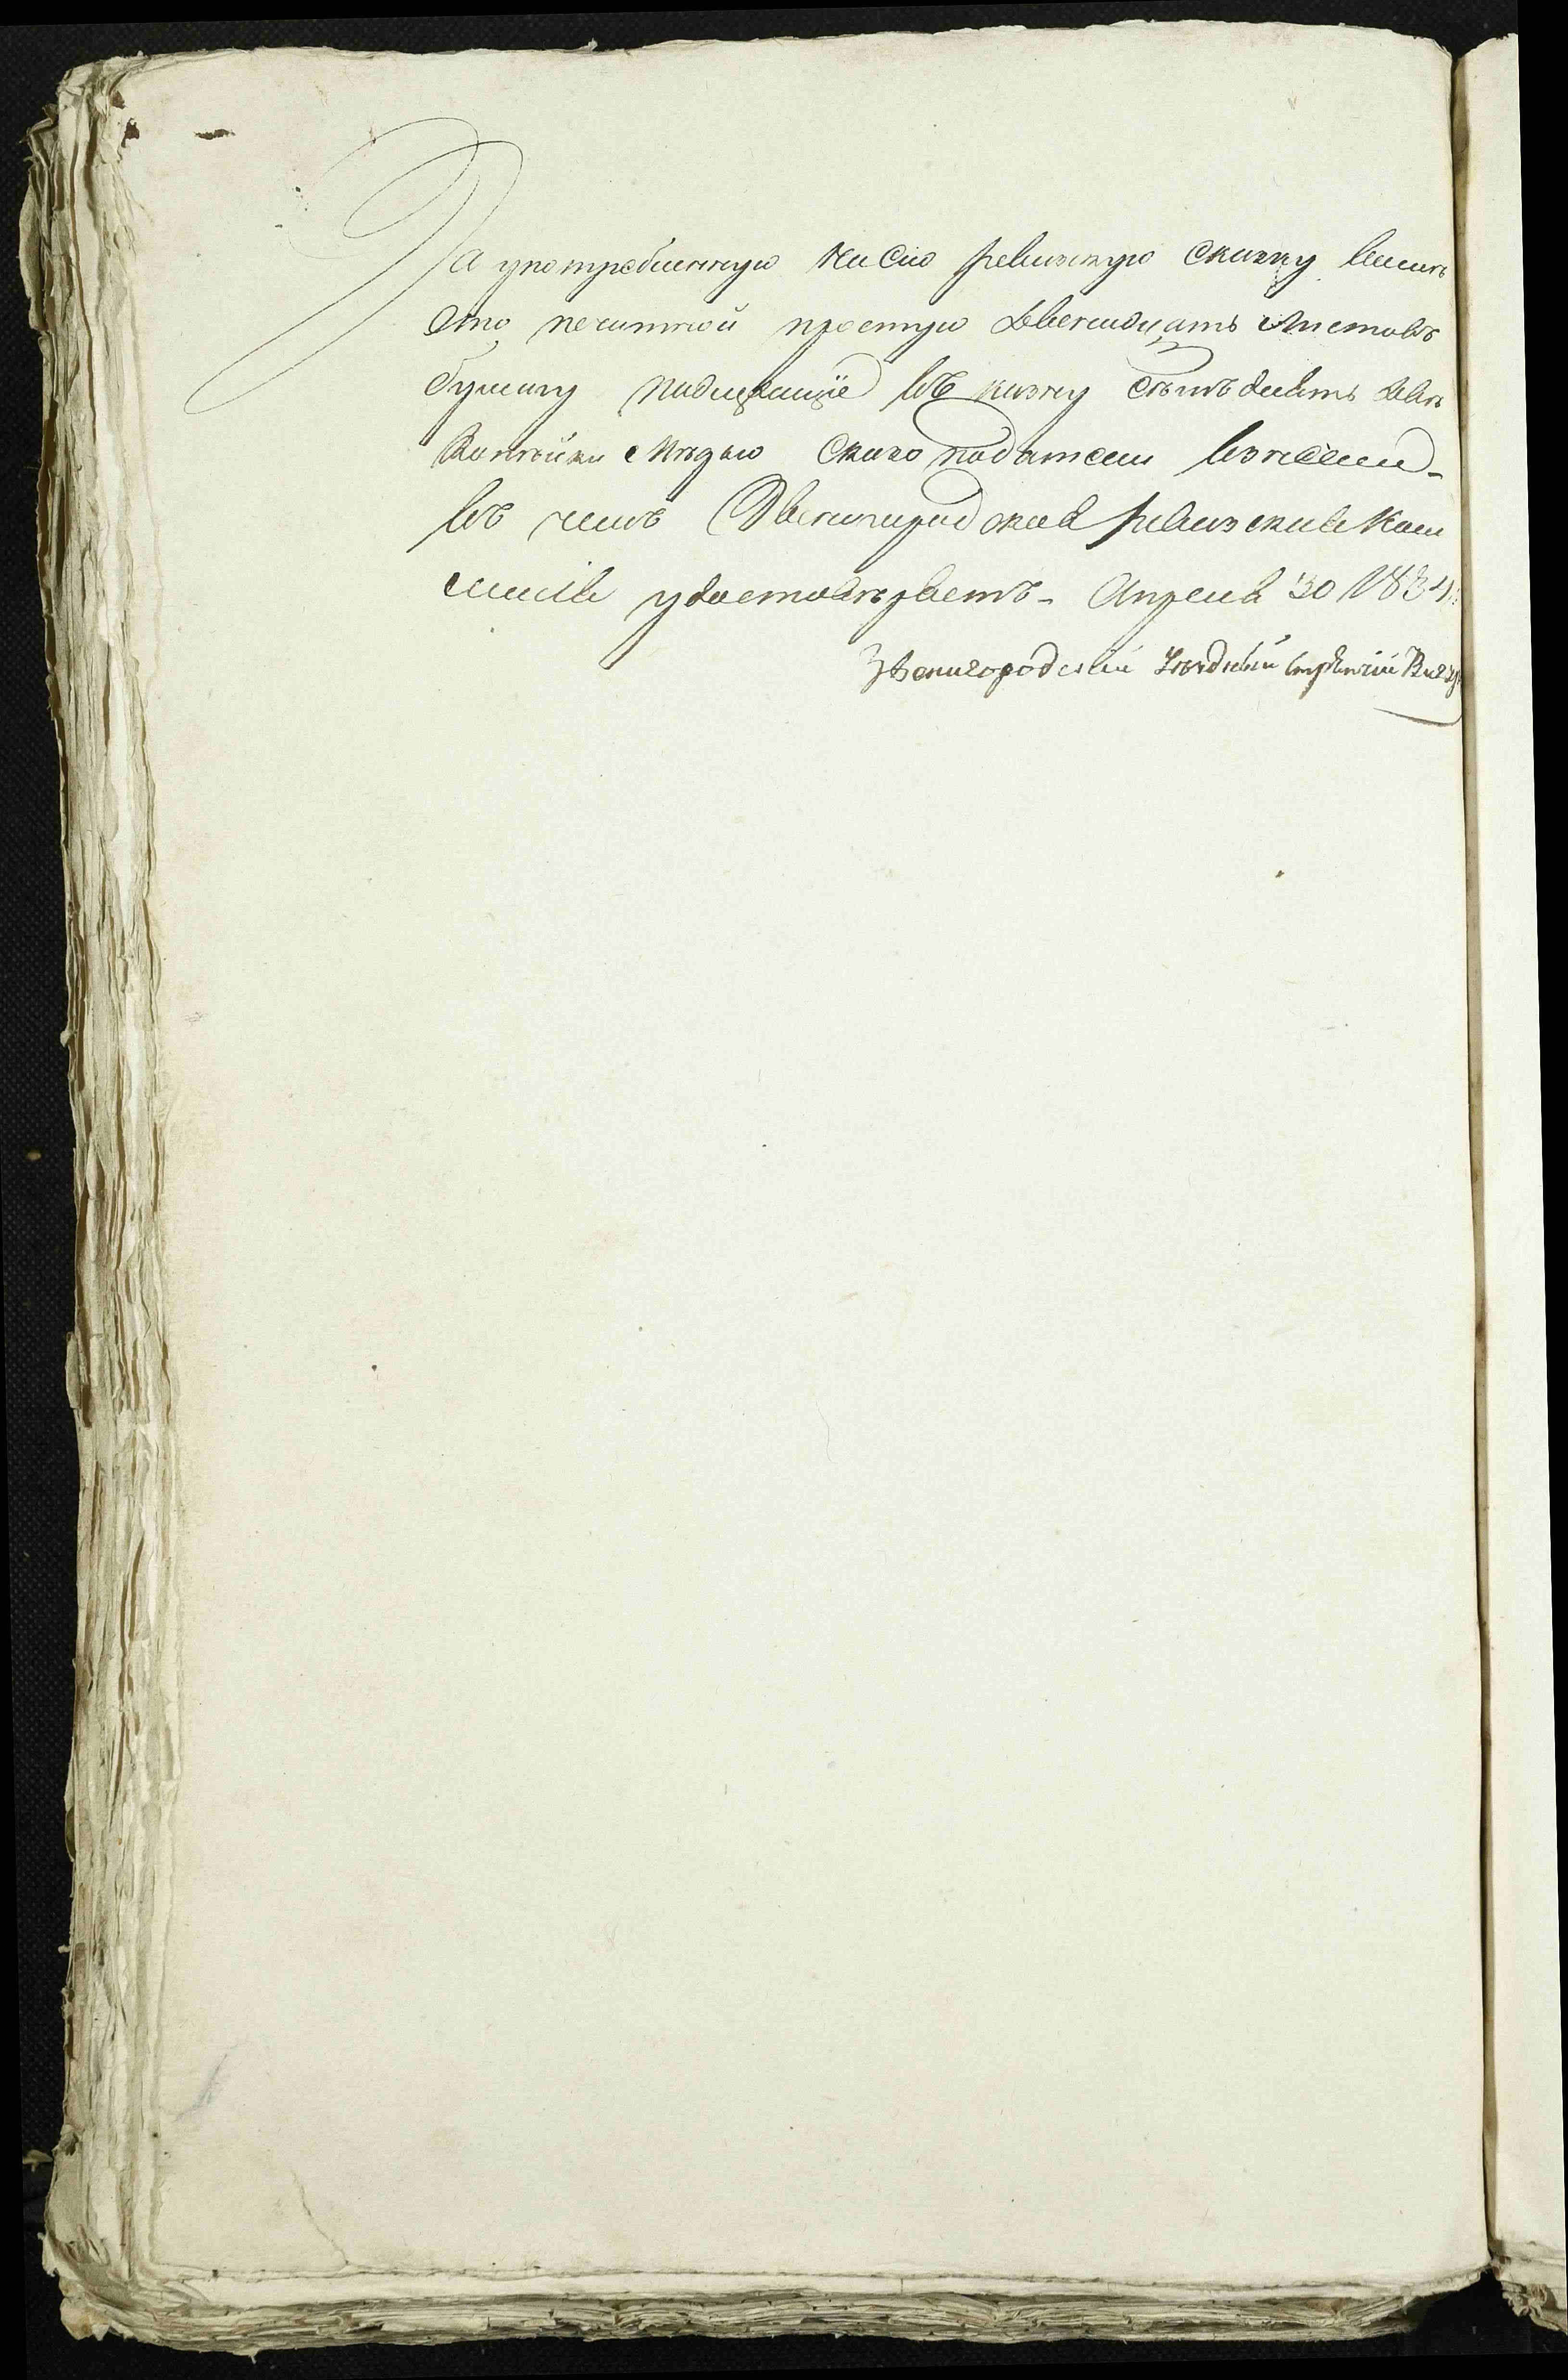 За употребленную на сию ревизскую сказку вмѣ
сто печатной простую двенадцать листовъ
бумагу надлежащiе въ казну семъдесятъ двѣ
копѣйки мѣдью съ кого податели взнесены
въ чемъ Звенигородская ревизская ком
мисiя удостовѣряетъ. Апреля 30 1834
Звенигородскiй Уѣздный стряпчiй